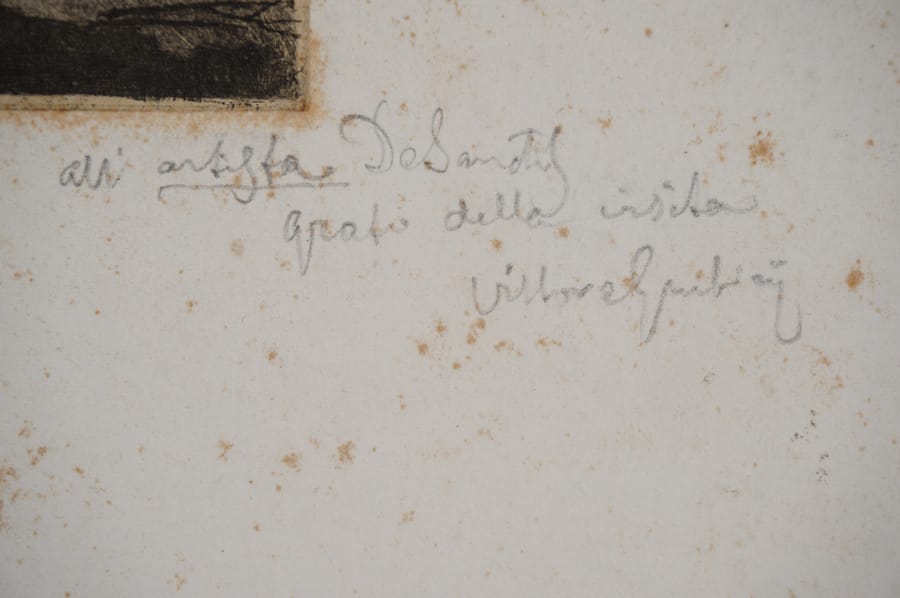 all' artista De Sanctis
grato della visita
Vittore Grubicÿ